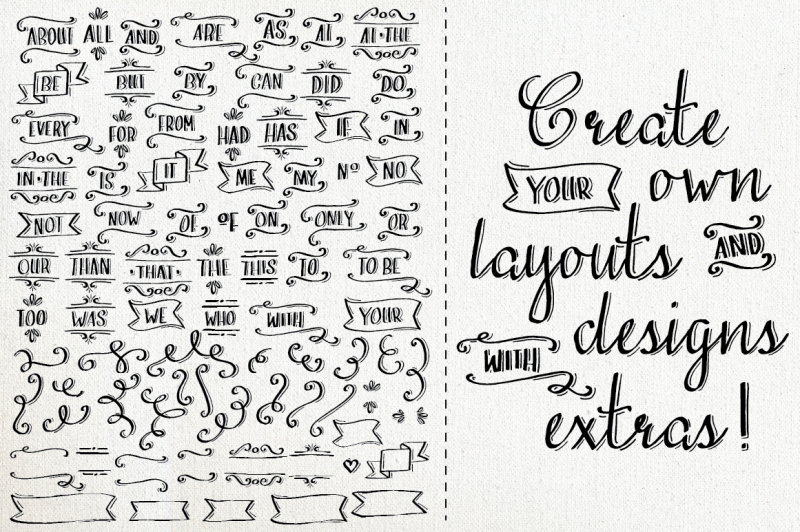 ABOUT ALL AND ARE AS AT AT·THE
BE BUT BY CAN DID DO
EVERY FOR FROM HAD HAS IF IN
IN·THE IS IT ME MY Nº NO
NOT NOW OF OF ON ONLY OR
OUR THAN ·THAT· THE THIS TO TO BE
TOO WAS WE WHO WITH YOUR
Create
YOUR own
layouts AND
designs
WITH
extras!